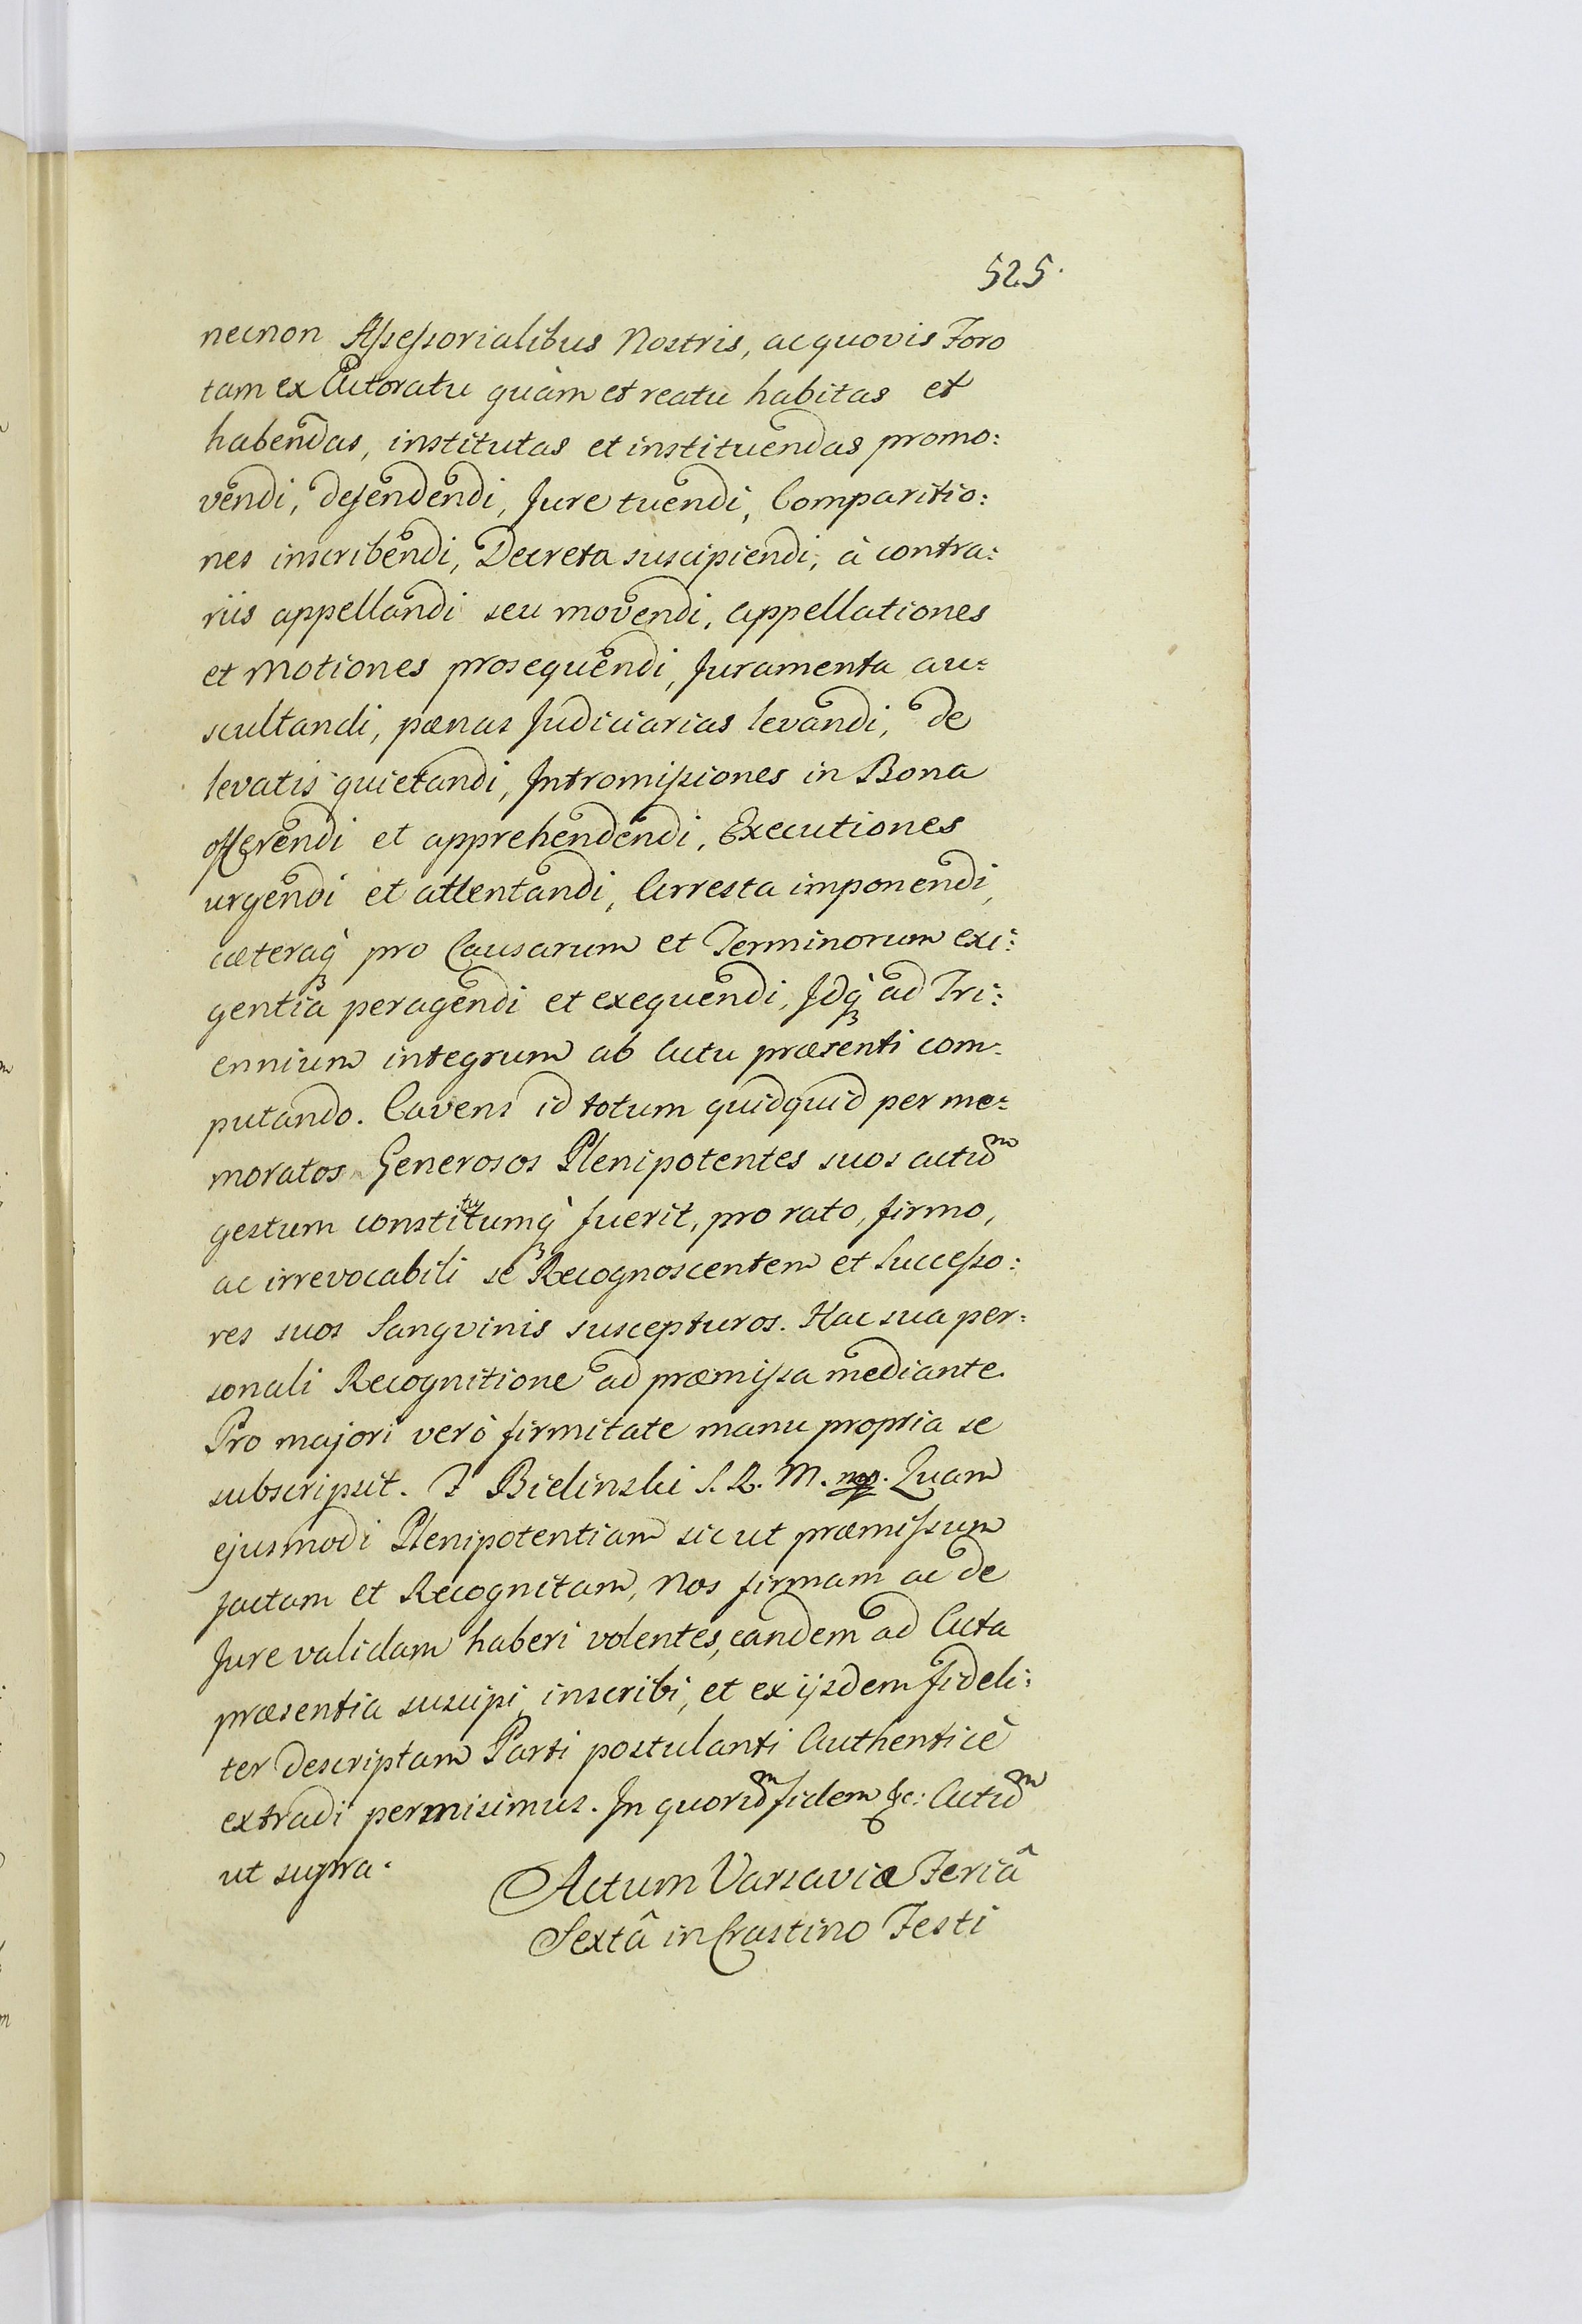 525.
necnon Aſseſsorialibus Nostris, ac quovis Foro
tam ex Actoratu quàm et reatu habitas et
habendas, institutas et instituendas promo:
vendi, defendendi, Jure tuendi, Comparitio:
nes inscribendi, Decreta suscipiendi, à contra:
riis appellandi seu movendi, appellationes
et Motiones prosequendi, Juramenta au:
scultandi, pænas Judiciarias levandi, de
levatis quietandi, Intromiſsiones in Bona
offerendi et apprehendendi, Executiones
urgendi et attentandi, Arresta imponendi,
cæteraq̀ pro Causarum et Terminorum exi:
gentia peragendi et exequendi, Idq̀ ad Tri:
ennium integrum ab Actu præsenti com:
putando. Cavens id totum quidquid per me:
moratos Generosos Plenipotentes suos actũm
gestum constitutumq̀ fuerit, pro rato, firmo,
ac irrevocabili se Recognoscentem et Succeſso:
res suos Sangvinis suscepturos. Hac sua per:
sonali Recognitione ad præmiſsa mediante.
Pro majori verò firmitate manu propria se
subscripsit. F Bielinski S. R. M. mp. Quam
ejusmodi Plenipotentiam sic ut præmiſsum
factam et Recognitam, Nos firmam ac de
Jure validam haberi volentes, eandem ad Acta
præsentia suscipi, inscribi, et ex ijsdem fideli:
ter descriptam Parti postulanti Authenticè
extradi permisimus. In quorũm fidem &c: Actũm
ut supra.
Actum Varsaviæ Feriâ
Sextâ in Crastino Festi